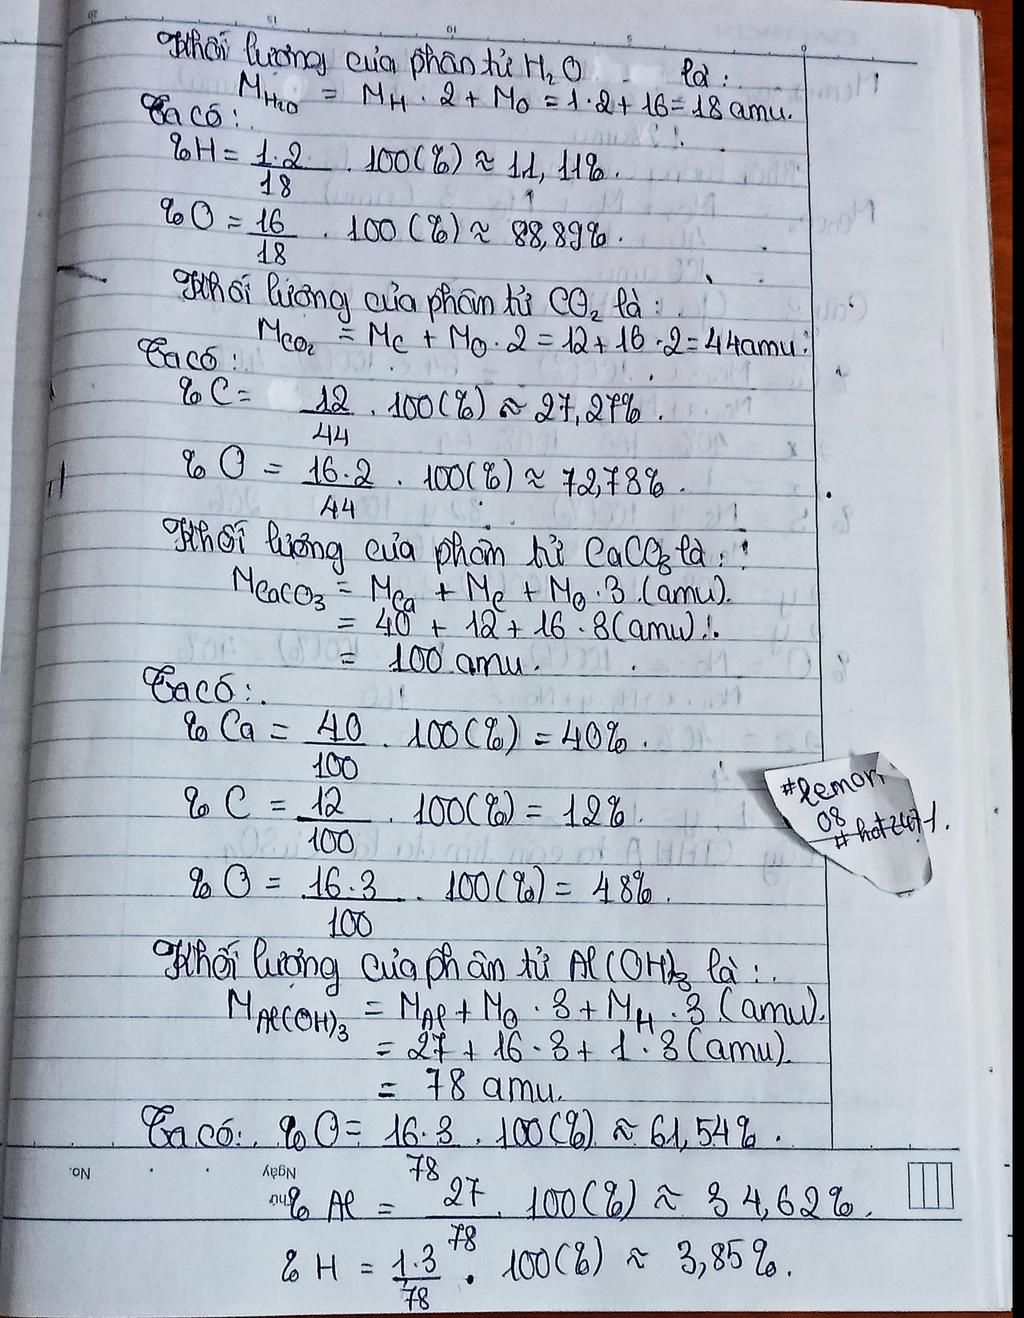 Khối lượng của phân tử H₂O là:
M_H₂O = M_H · 2 + M_O = 1·2 + 16 = 18 amu.
Ta có:
%H = 1·2/18 · 100(%) ≈ 11,11%.
%O = 16/18 · 100(%) ≈ 88,89%.
Khối lượng của phân tử CO₂ là:
M_CO₂ = M_C + M_O · 2 = 12 + 16 · 2 = 44 amu.
Ta có:
%C = 12/44 · 100(%) ≈ 27,27%.
%O = 16·2/44 · 100(%) ≈ 72,78%.
Khối lượng của phân tử CaCO₃ là:
M_CaCO₃ = M_Ca + M_C + M_O · 3 (amu).
= 40 + 12 + 16 · 3 (amu).
= 100 amu.
Ta có:
%Ca = 40/100 · 100(%) = 40%.
%C = 12/100 · 100(%) = 12%.
#lemon
08
%O = 16·3/100 · 100(%) = 48%.
Khối lượng của phân tử Al(OH)₃ là:
M_Al(OH)₃ = M_Al + M_O · 3 + M_H · 3 (amu).
= 27 + 16 · 3 + 1 · 3 (amu).
= 78 amu.
Ta có: %O = 16·3/78 · 100(%) ≈ 61,54%.
No. Ngày
Thứ
%Al = 27/78 · 100(%) ≈ 34,62%.
%H = 1·3/78 · 100(%) ≈ 3,85%.